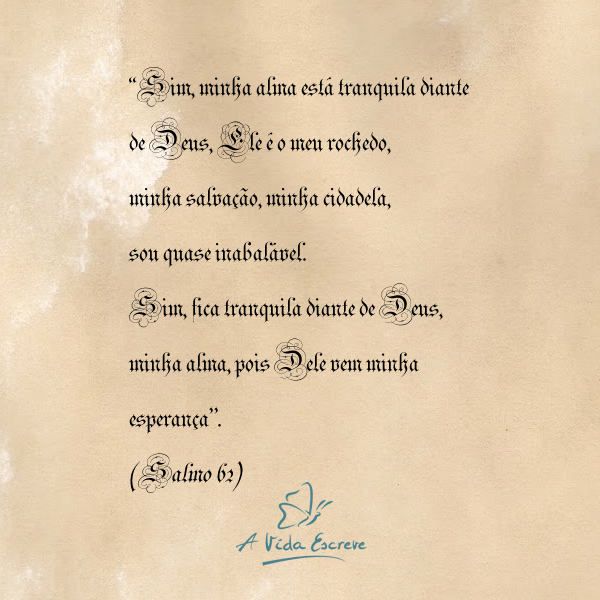 “Sim, minha alma está tranquila diante
de Deus, Ele é o meu rochedo,
minha salvação, minha cidadela,
sou quase inabalável.
Sim, fica tranquila diante de Deus,
minha alma, pois Dele vem minha
esperança”.
(Salmo 62)
A Vida Escreve